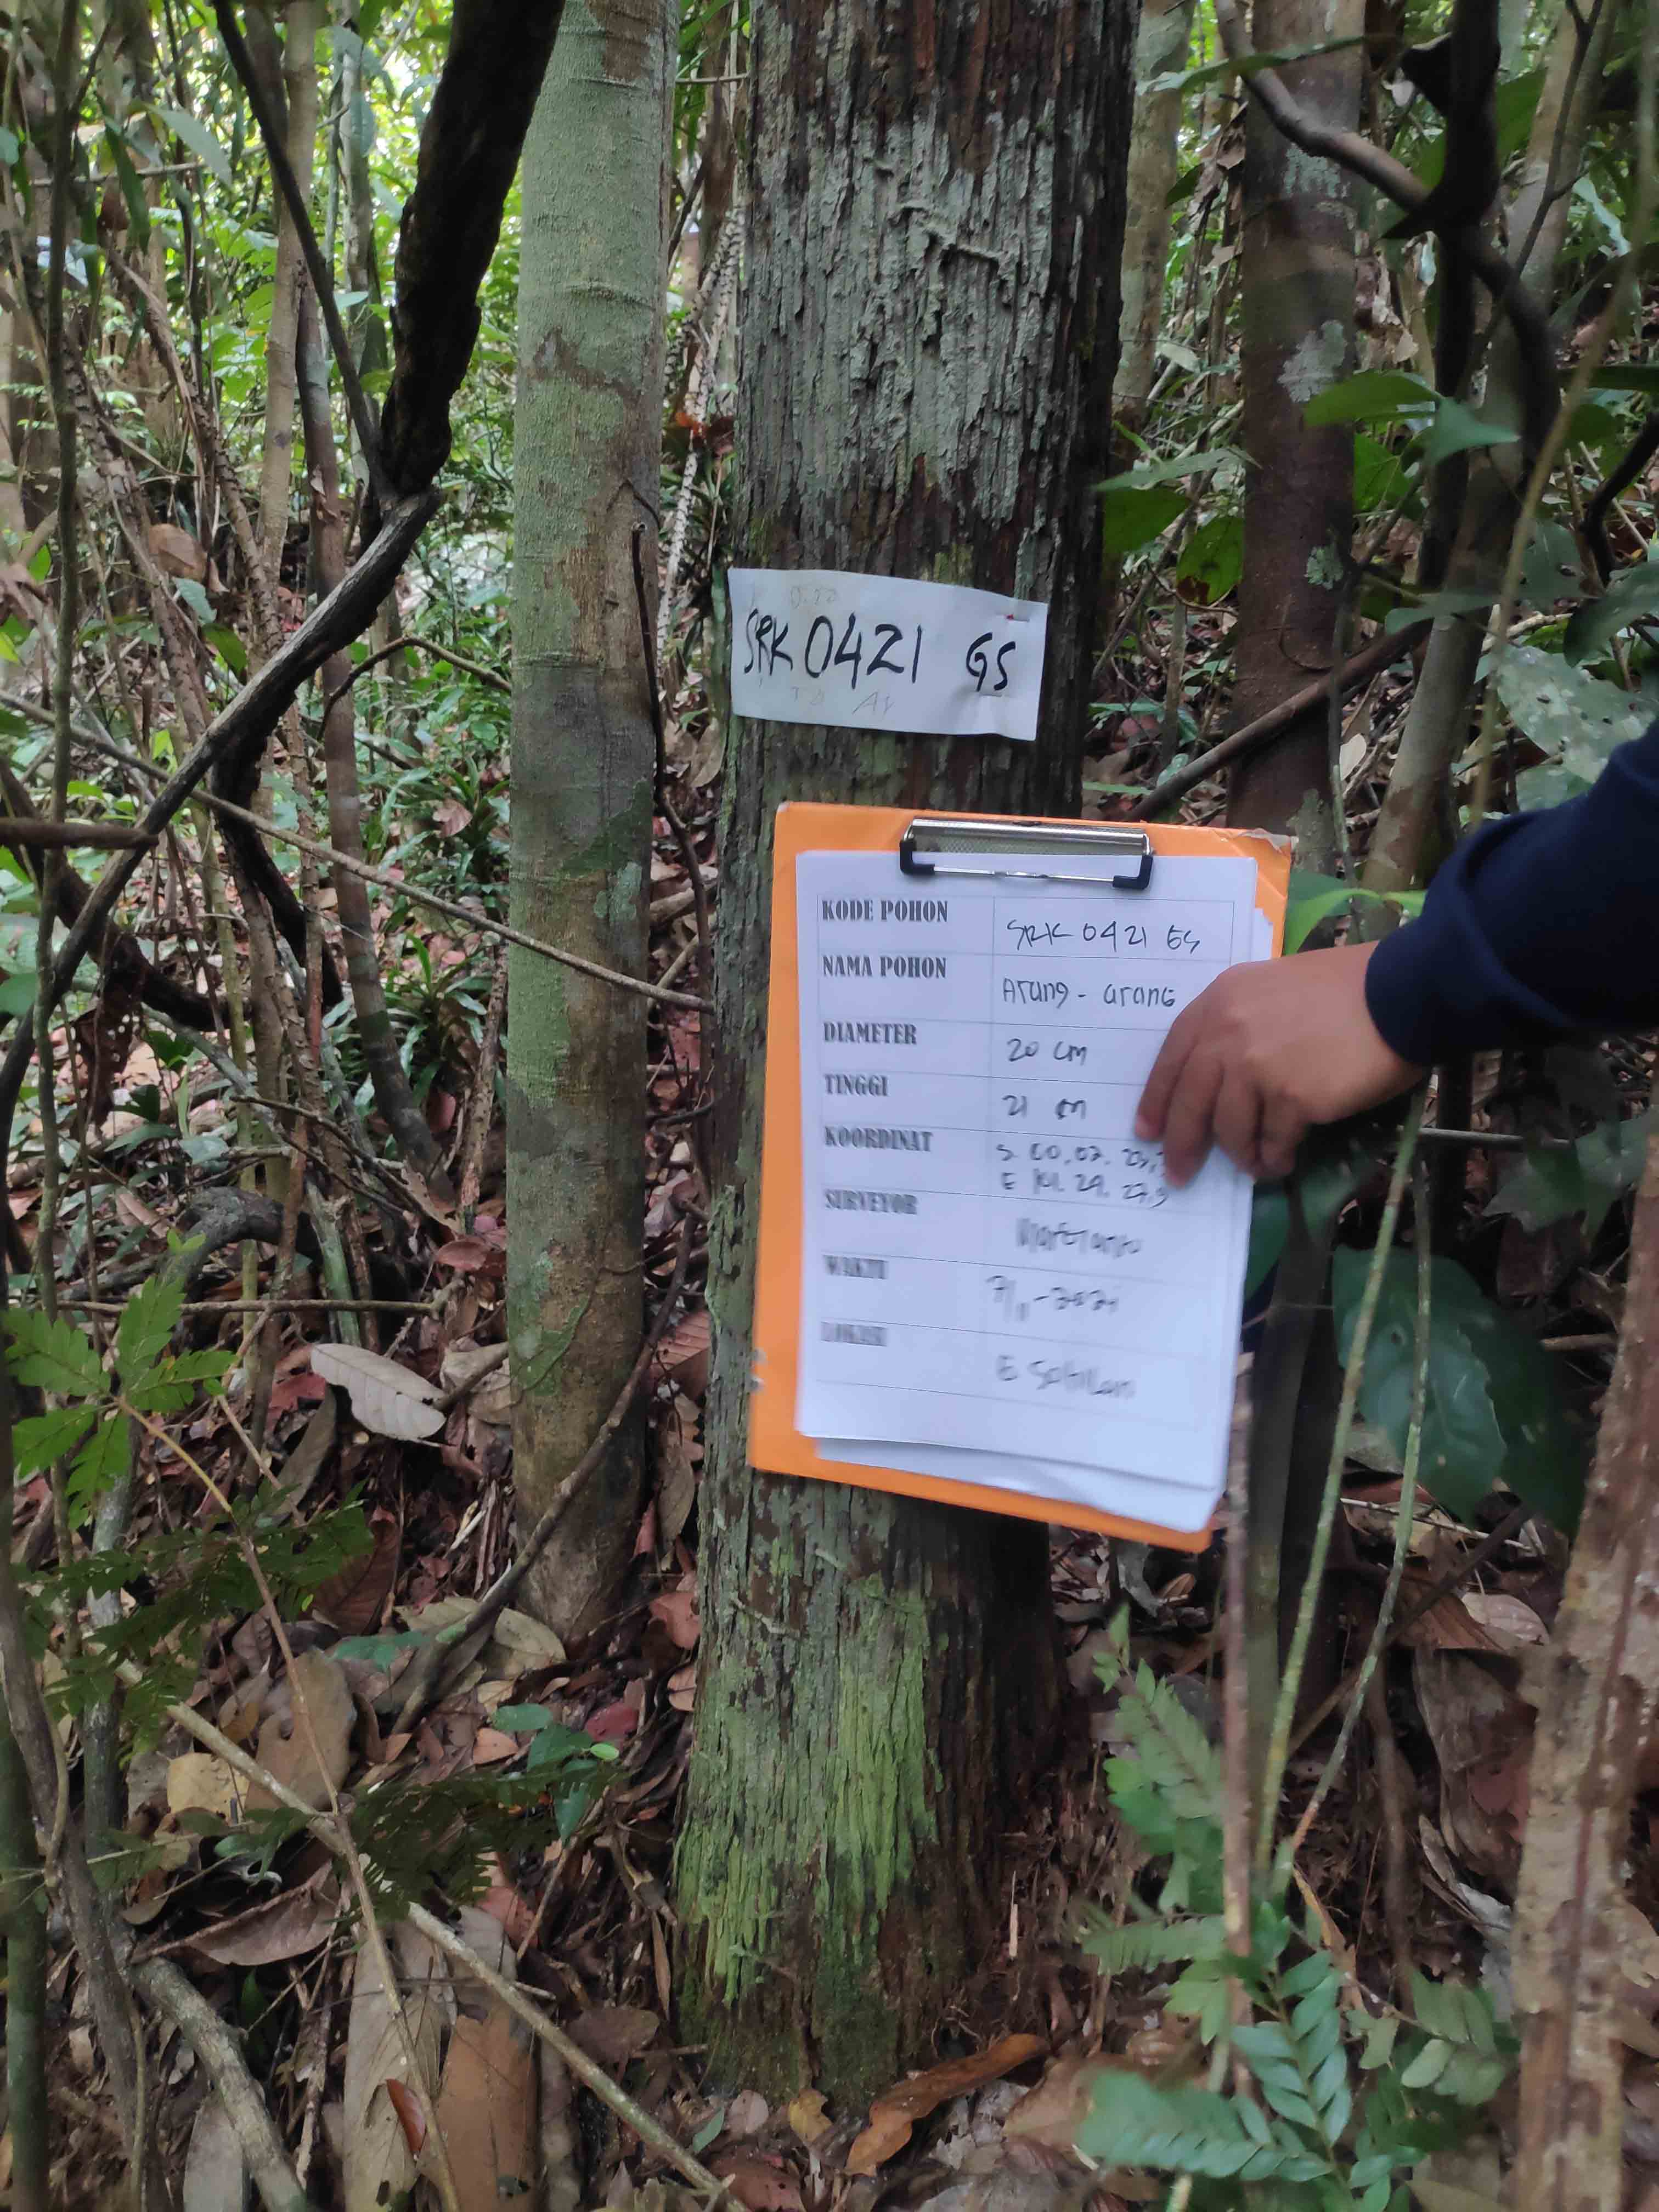 SRK 0421 GS
KODE POHON SRK 0421 GS
NAMA POHON Arang - arang
DIAMETER 20 cm
TINGGI 21 m
KOORDINAT S 00, 02,
E 101. 29. 27,9
SURVEYOR
WAKTU 7/1-2021
LOKASI